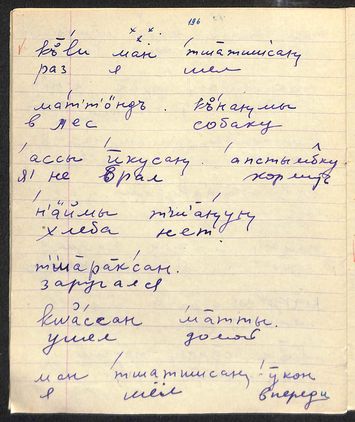 186
къ̊ви ман тша́тшисаң
раз я шел
ма́т'т'ӧндъ. къ̊наңмы
в лес собаку
а́ссы ӣкусаң. а́псты
я не врал кормить
н'а̄ймы т'ша́ңуң
хлеба нет.
т'ша̄ра̄ксан.
заругался
кша́ссан ма̄тты.
ушел домой
ман тшатшисаң ӯкон
я шёл впереди